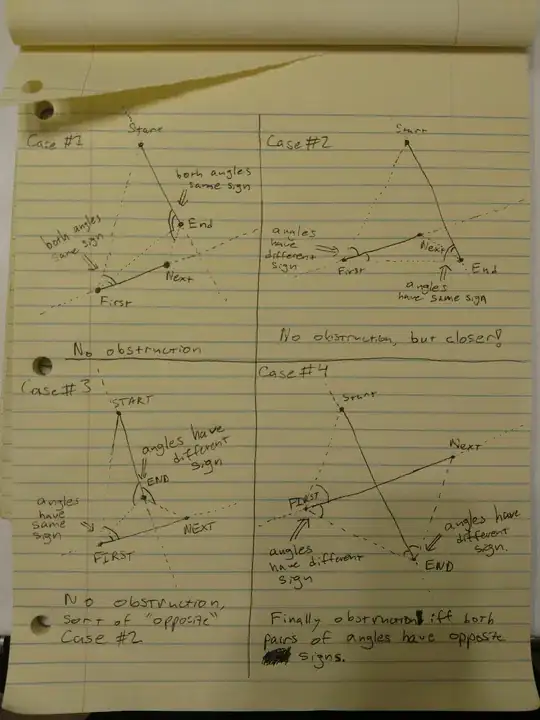 Case #1
Start
both angles
same sign
End
both angles
same sign
Next
First
No obstruction
Case #2
Start
angles
have
different
sign
Next
First
End
angles
have same sign
No obstruction, but closer!
Case #3
START
angles have
different
sign
END
angles
have
same
sign
NEXT
FIRST
No obstruction,
sort of "opposite"
Case #2
Case #4
Start
Next
FIRST
angles have
different
sign.
angles
have different
sign
END
Finally obstruction! iff both
pairs of angles have opposite
signs.